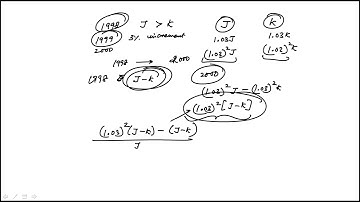 1998 J > K J K
1999 3% increment 1.03J 1.03K
2000 (1.03)²J (1.03)²K
1998 → 2000
1998 J-K 2000
(1.03)²J - (1.03)²K
(1.03)² [J-K]
(1.03)² (J-K) - (J-K)
J